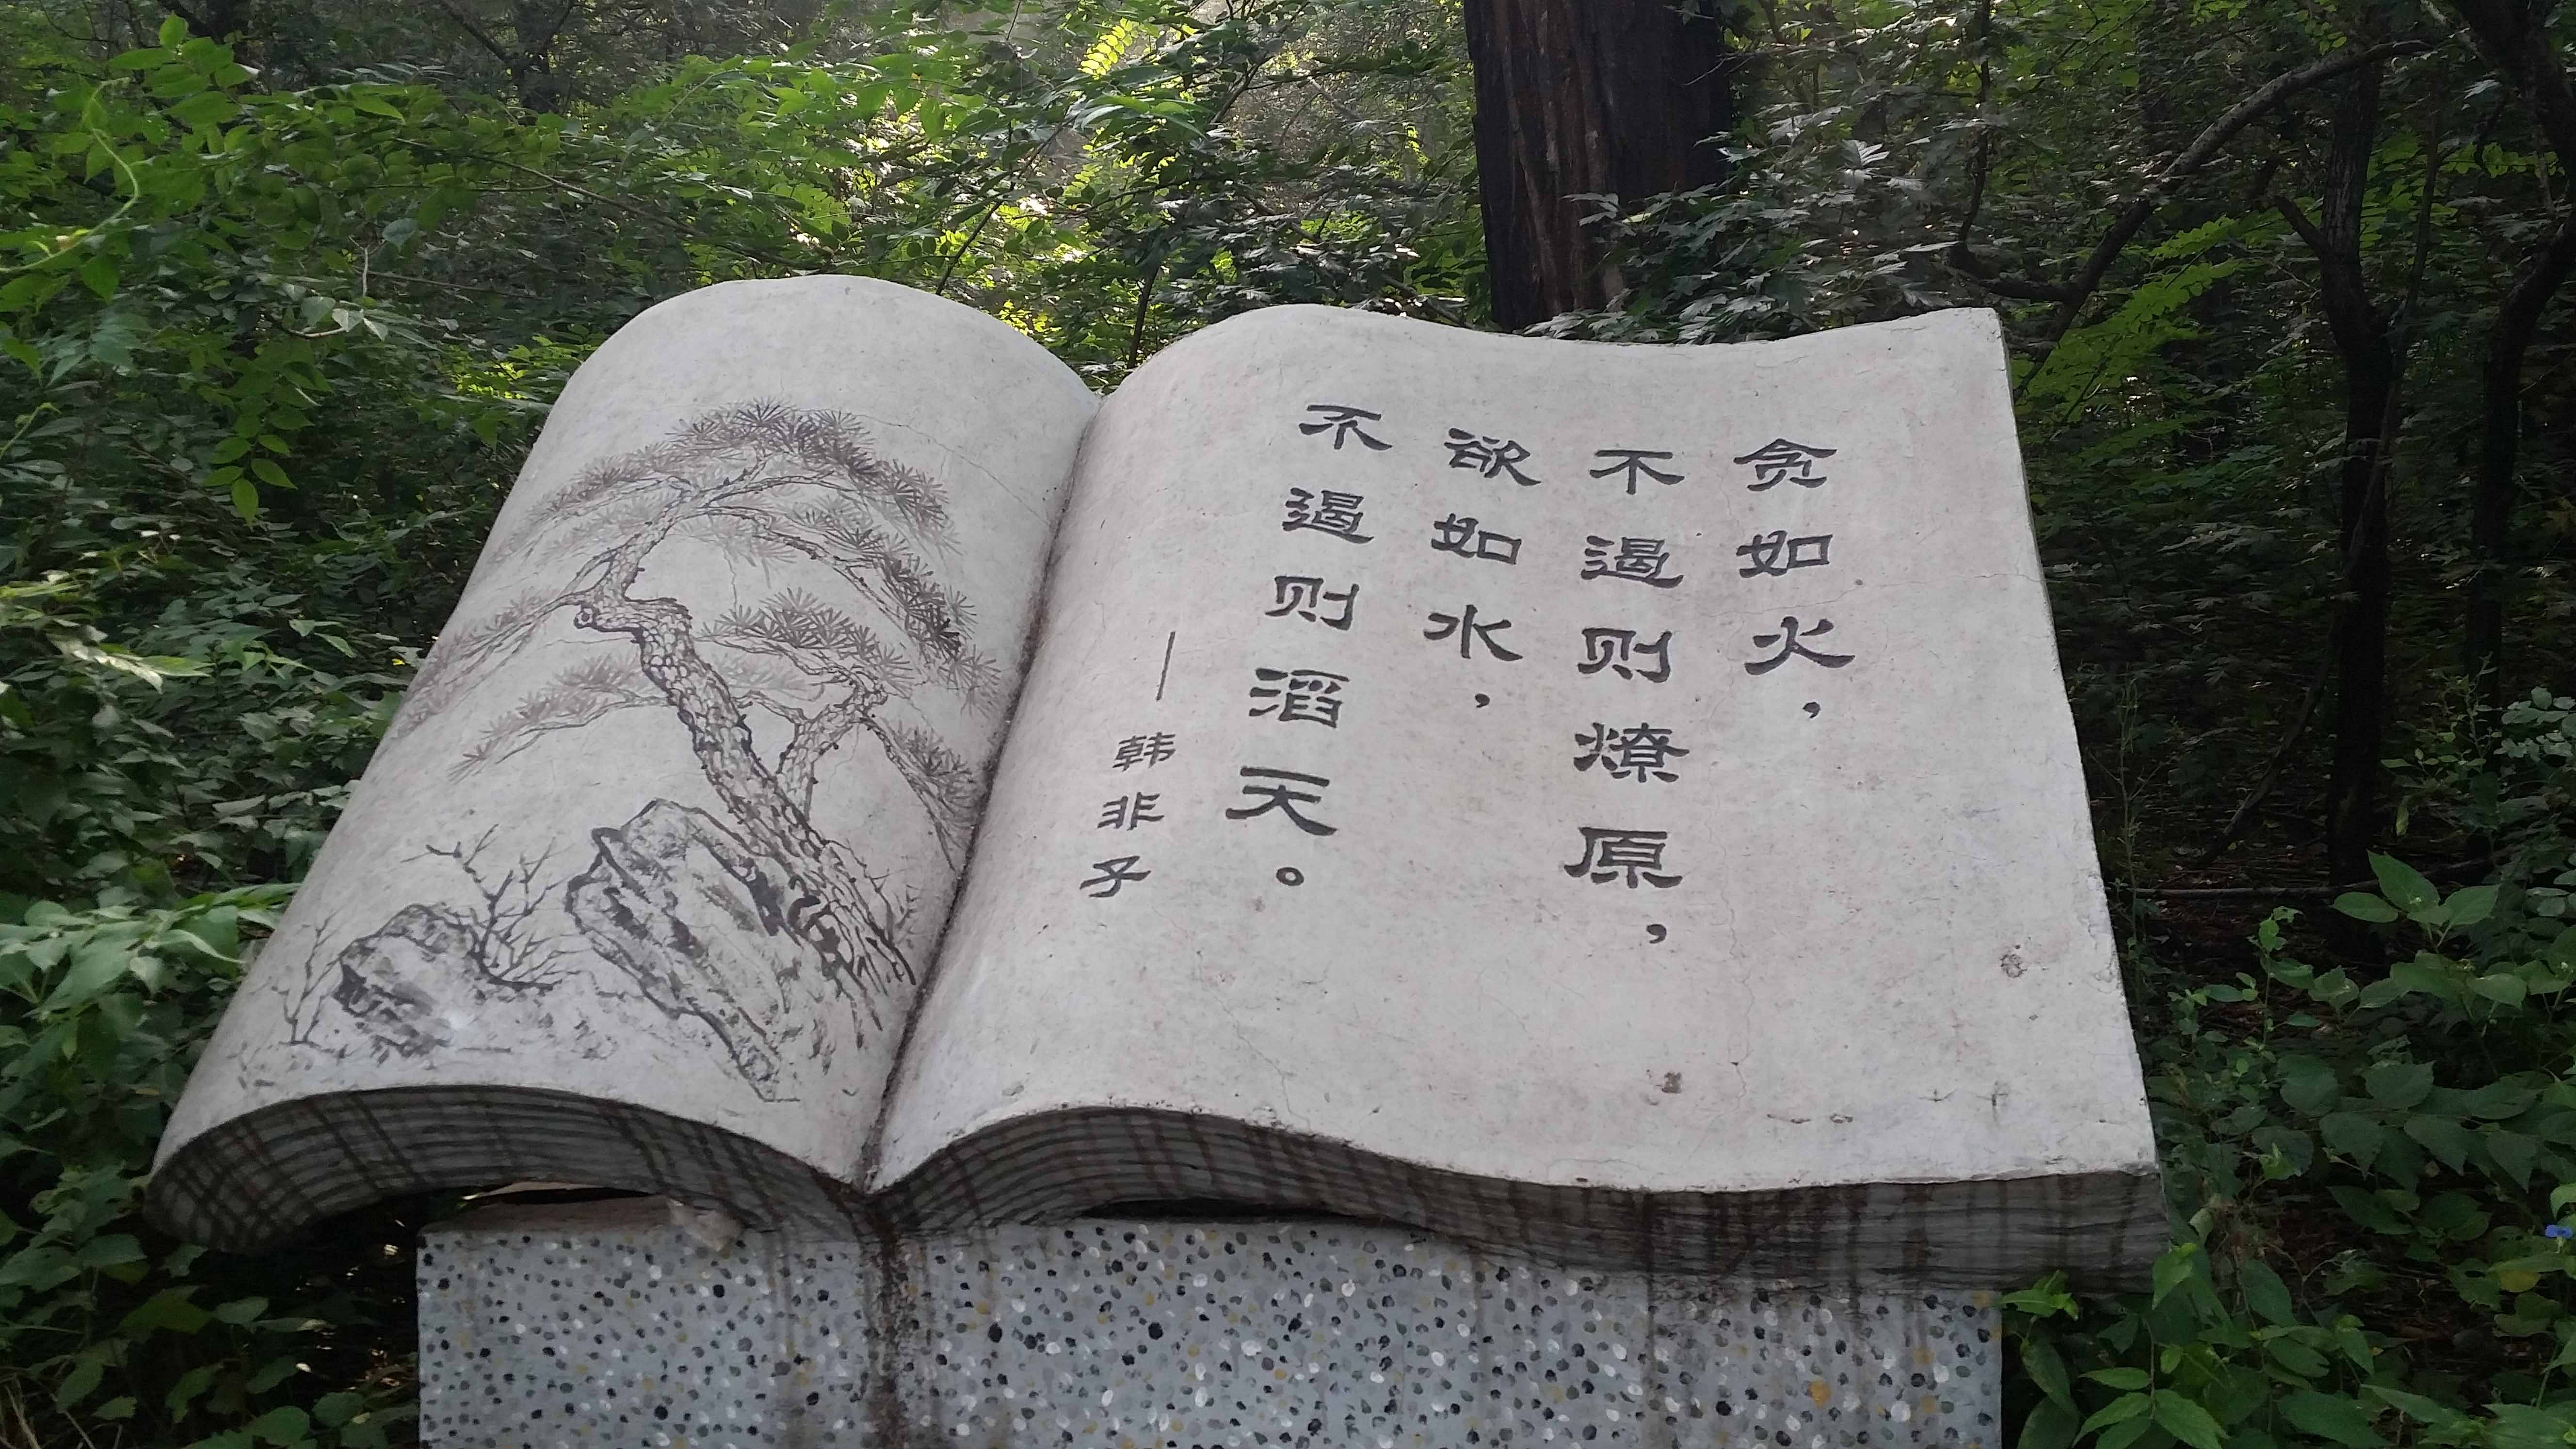 贪如火，
不遏则燎原，
欲如水，
不遏则滔天。
—韩非子